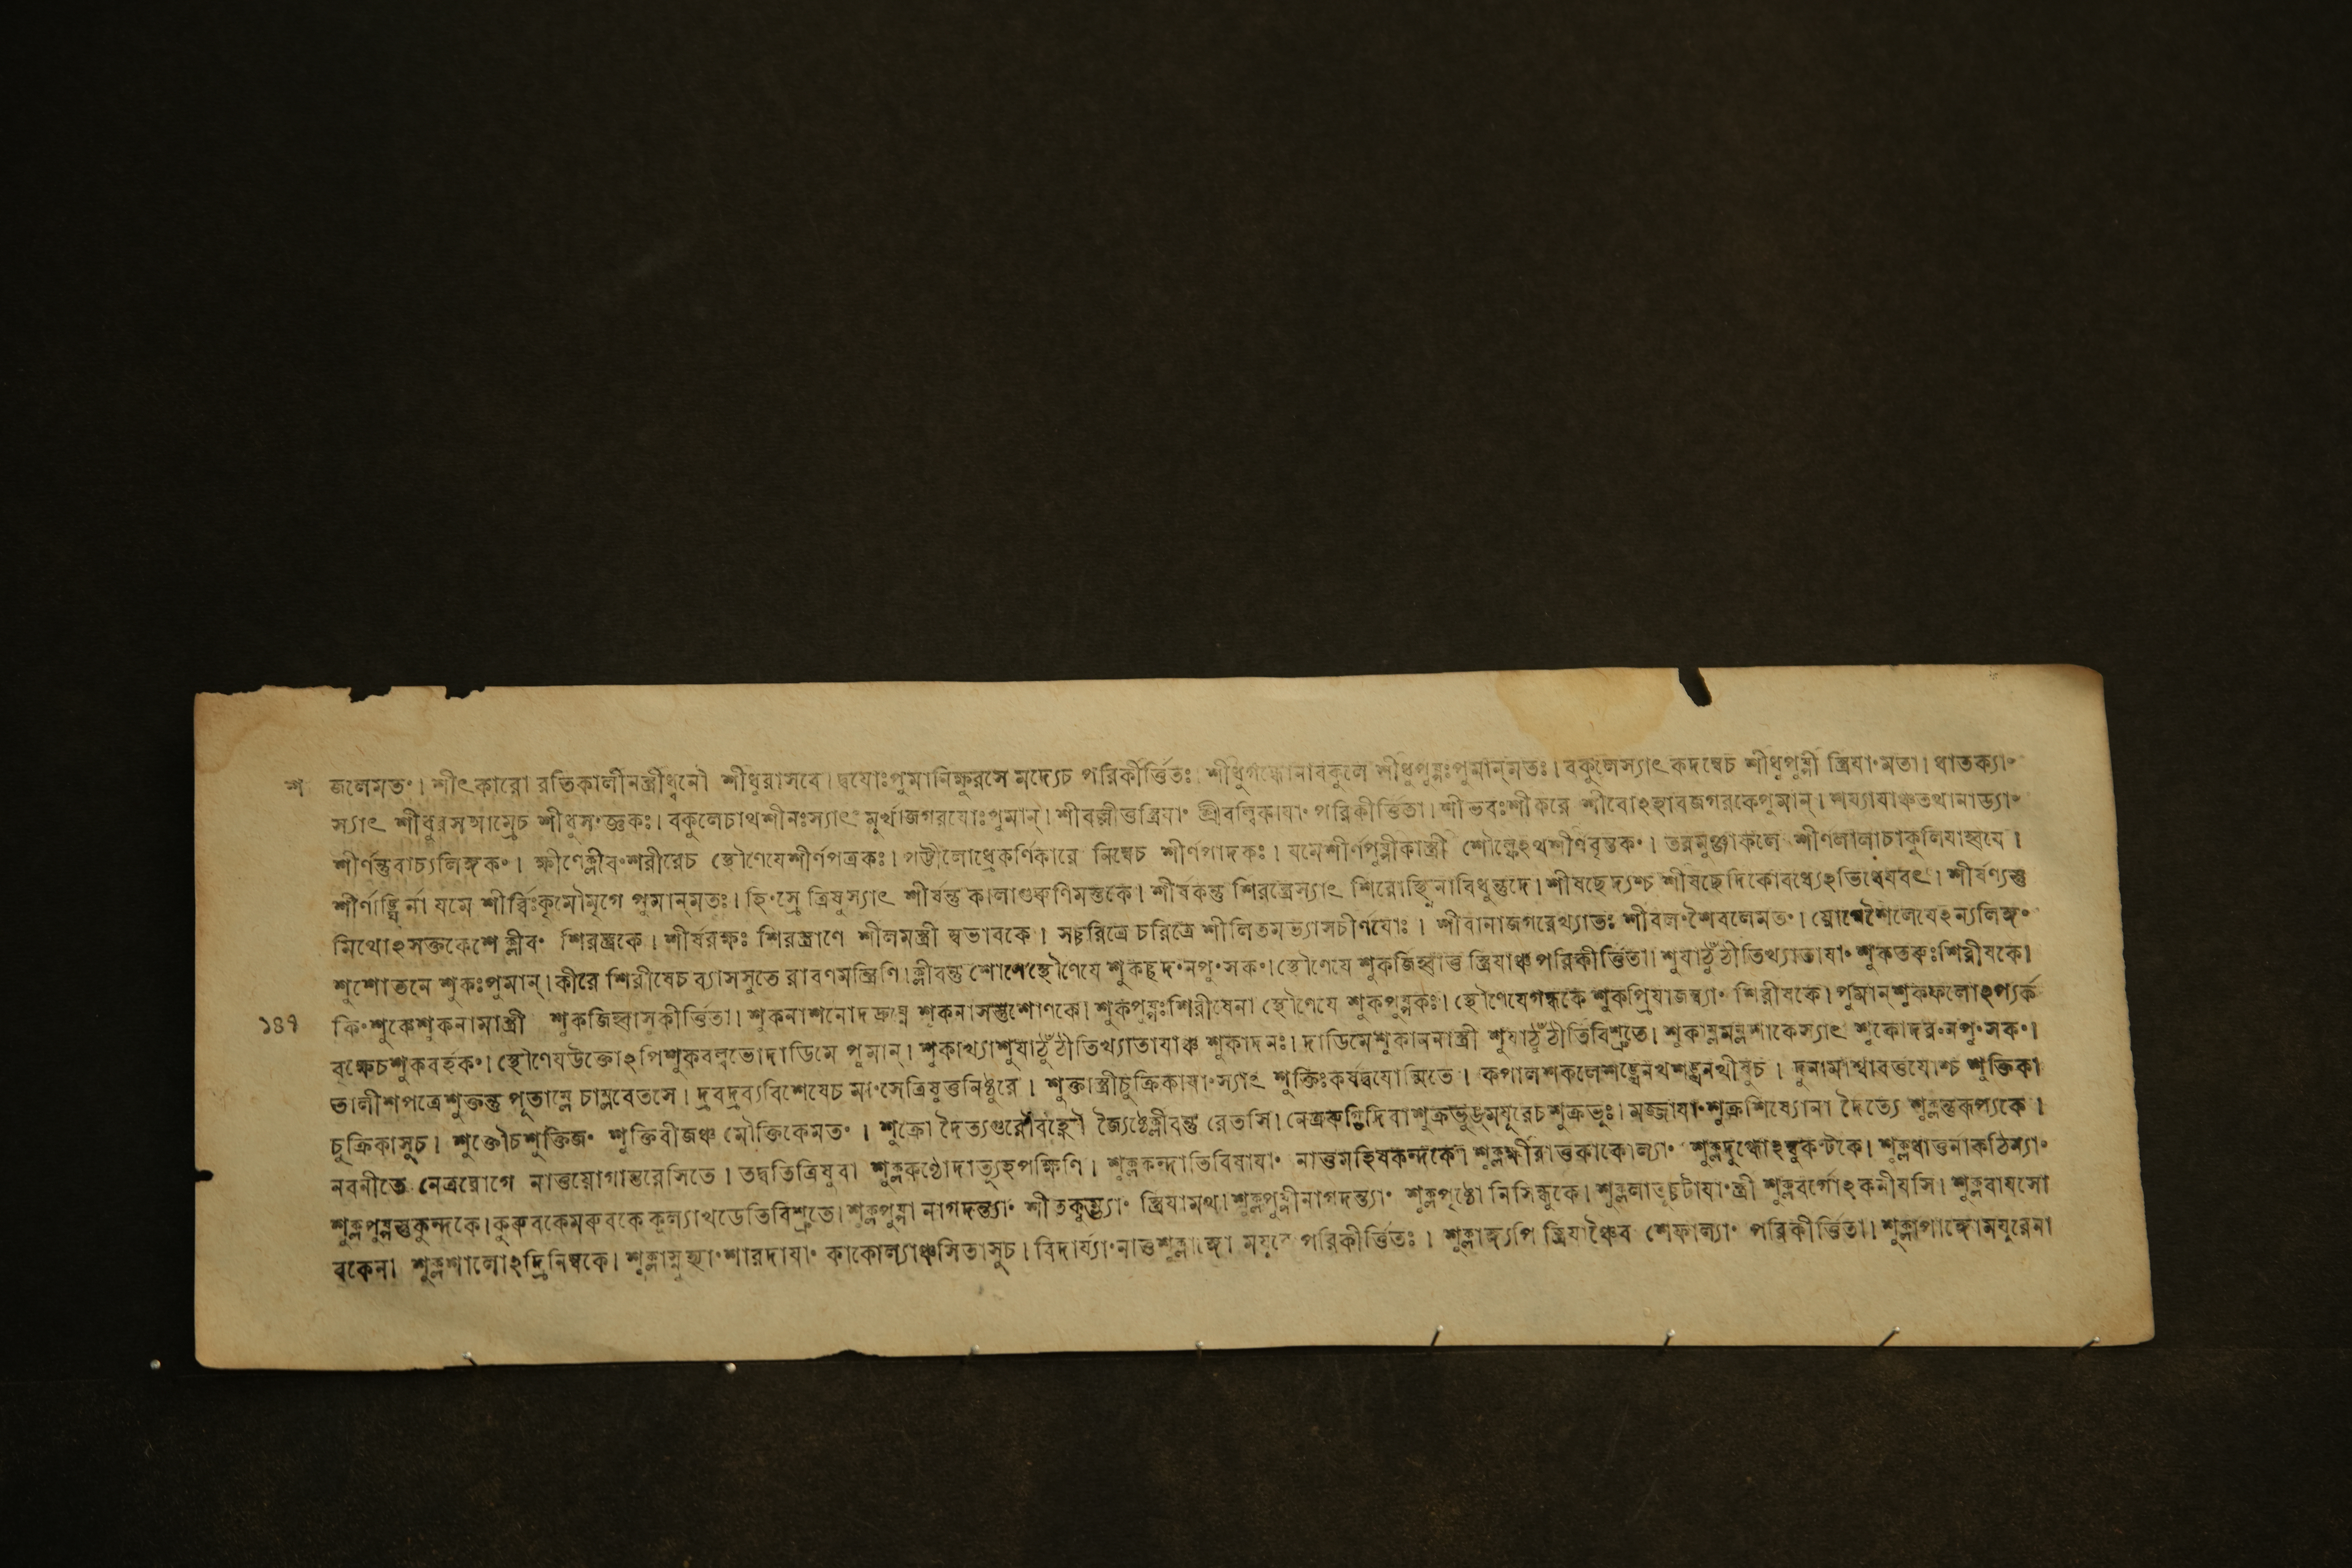 শ জলেমতং। শীৎকারো রতিকালীনস্ত্রীধ্বনৌ শীধুরাসবে। দ্বযোঃপুমানিক্ষুরসে মদ্যেচ পরিকীর্ত্তিতঃ। শীধুগন্ধোনাবকুলে শীধুপুষ্পঃপুমান্মতঃ। বকুলেস্যাৎ কদম্বেচ শীধুপুষ্পী স্ত্রিযাংমতা। ধাতক্যাং
স্যাৎ শীধুরসআম্রেচ শীধুসংজ্ঞকঃ। বকুলেচাথশীনঃস্যাৎ মূর্খাজগরযোঃপুমান্। পরিকীর্ত্তিতা। শীভবঃশীকরে শীবোঽহাবজগরকেপুমান্।
শীর্ণন্তুবাচ্যলিঙ্গকং। ক্ষীণেক্লীবংশরীরেচ স্থৌণেযেশীর্ণপত্রকঃ। পট্টীলোধ্রেকর্ণিকারে নিম্বেচ শীর্ণপাদকঃ। যমেশীর্ণপুষ্পীকাস্ত্রী
শীর্ণাঙ্ঘ্রির্না যমে শীর্ব্বিঃকৃমৌমৃগে পুমান্মতঃ। হিংস্রে ত্রিষুস্যাৎ শীর্ষন্তু শীর্ষকন্তু শিরস্ত্রেস্যাৎ শিরোস্থ্নিনাবিধুন্তুদে। শীর্ষছেদ্যশ্চ শীর্ষছেদিকোবধ্যেঽভিধেযবৎ। শীর্ষণ্যন্তু
মিথোঽসক্তকেশে ক্লীবং শিরস্ত্রকে। শীর্ষরক্ষঃ শিরস্ত্রাণে শীলমস্ত্রী স্বভাবকে। সচ্চরিত্রে চরিত্রে শীলিতমভ্যাসচীর্ণযোঃ। শীবানাজগরেথ্যাতঃ শীবলংশৈবলেমতং।
শুশোতনে শুকঃপুমান্। কীরে শিরীষেচ ব্যাসসুতে রাবণমন্ত্রিণি। ক্লীবন্তু স্থৌণেযে শুকছদংনপুংসকং। স্থৌণেযে শুকজিহ্বাত্ত স্ত্রিযাঞ্চপরিকীর্ত্তিতা। শুযাঠুঁঠীতিথ্যাতাযাং শুকতরুঃশিরীষকে।
১৪৭ কিংশুকেশুকনামাস্ত্রী শূকজিহ্বাসকীর্ত্তিতা। শুকনাশনোদদ্রুঘ্ন শূকনাসস্তুশোণকে। শুকপুষ্পঃশিরীষেনা স্থৌণেযে শুকপুষ্পকঃ। স্থৌণেযেগন্ধকে শুকপ্রিযাজম্ব্যাং শিরীষকে। পুমান্শুকফলোঽপ্যর্ক
বৃক্ষেচশুকবর্হকং। স্থৌণেযউক্তোঽপিশুকবল্লভোদাডিমে পুমান্। শুকাখ্যাশুযাঠুঁঠীতিখ্যাতাযাঞ্চ শুকাদনঃ। দাডিমেশুকাননাস্ত্রী শুযাঠুঁঠীতিবিশ্রুতে। শুকাম্লমম্লশাকেস্যাৎ শুকোদরংনপুংসকং।
তালীশপত্রেশুক্তন্তু পূতাম্লে চাম্লবেতসে। দ্রবদ্রব্যবিশেষেচ মাংসেত্রিষুত্তনিষ্ঠুরে। শুক্তাস্ত্রীচুক্রিকাযাংস্যাৎ শুক্তিঃকর্ষদ্বযোন্মিতে। কপালশকলেশঙ্খেনখশঙ্খনখীষুচ। দুর্নামাশ্বাবর্ত্তযোশ্চ শুক্তিকা
চুক্রিকাসুচ। শুক্তৌচশুক্তিজং শুক্তিবীজঞ্চ মৌক্তিকেমতং। শুক্রো দৈত্যগুরৌবহ্নৌ জ্যৈষ্ঠেক্লীবন্তু রেতসি। মজ্জাযাংশুক্রশিষ্যোনা দৈত্যে শুক্লন্তুরূপ্যকে।
নবনীতে নেত্ররোগে নাত্তযোগান্তরেসিতে। তদ্বতিত্রিষুবা শুক্লকণ্ঠোদাত্যূহপক্ষিণি। শুক্লকন্দাতিবিষাযাং নাত্তমহিষকন্দকে। শুক্লক্ষীরাত্তকাকোল্যাং শুক্লদুগ্ধোঽম্বুকণ্টকে। শুক্লধাত্তনাকঠিন্যাং
শুক্লপুষ্পস্তুকুন্দকে। কুরুবকেমরুবকে বিশ্রুতে। শুক্লপুষ্পা নাগদন্ত্যাং শীতকুম্ভ্যাং স্ত্রিযামথ। শুক্লপুষ্পীনাগদন্ত্যাং শুক্লপৃষ্ঠো নিসিন্ধুকে। শুক্লবর্গোঽকনীযসি। শুক্লবাযসো
বকেনা শুক্লশালোঽদ্রিনিম্বকে। শারদাযাং কাকোল্যাঞ্চসিতাসুচ। বিদার্য্যাংনাত্তশুক্লাঙ্গো পরিকীর্ত্তিতঃ। শুক্লাঙ্গ্যপি স্ত্রিযাঞ্চৈব শেফাল্যাং পরিকীর্ত্তিতা। শুক্লাপাঙ্গোমযূরেনা